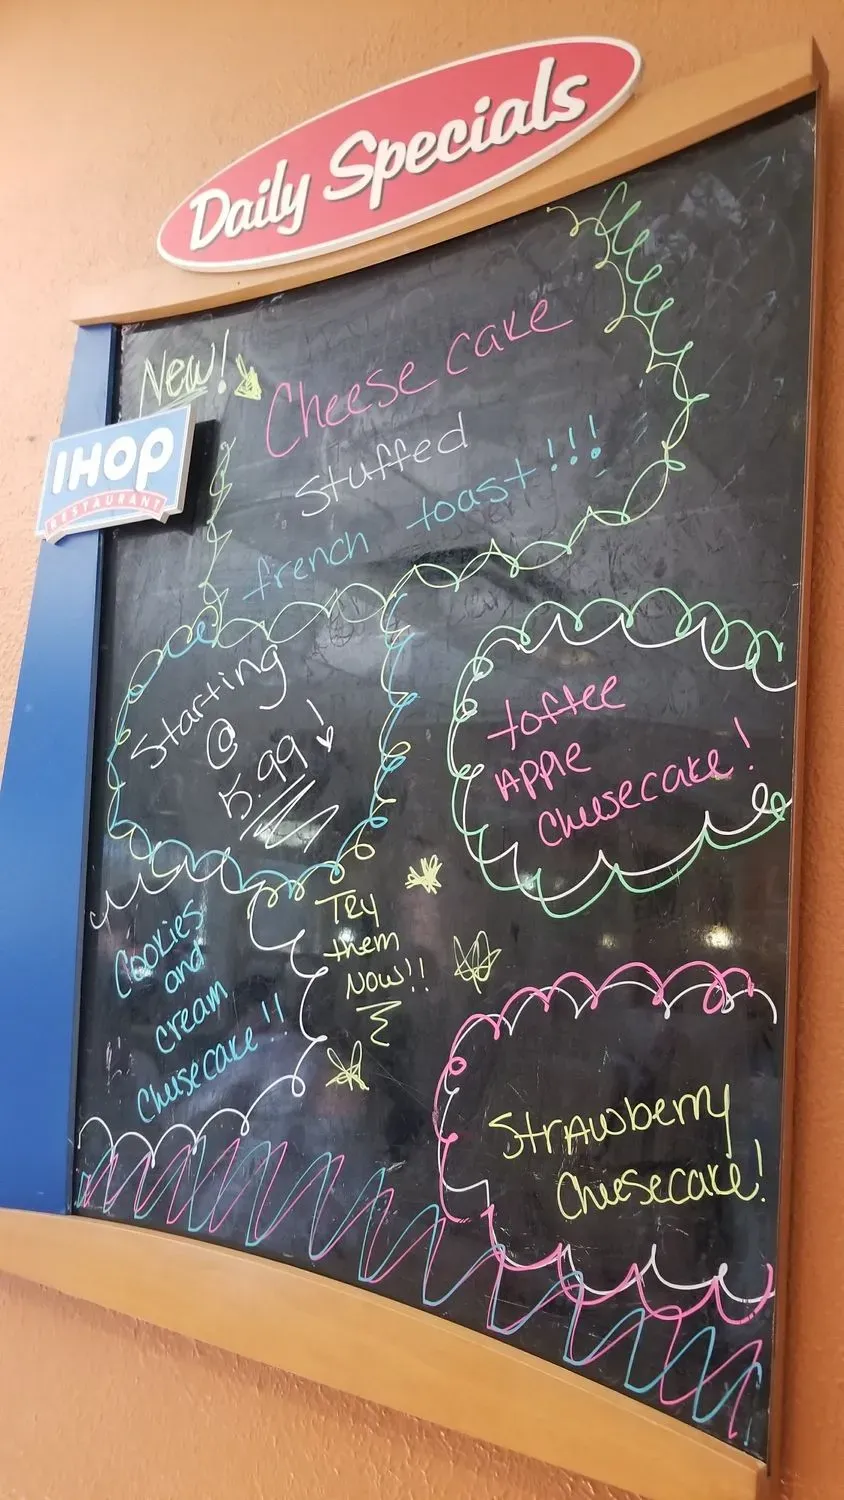 Daily Specials
New!
Cheese cake
stuffed
french toast!!!
IHOP
RESTAURANT
Starting
@
5.99!
toffee
Apple
Cheesecake!
Cookies
and
cream
Cheesecake!!
Try
them
NOW!!
Strawberry
Cheesecake!